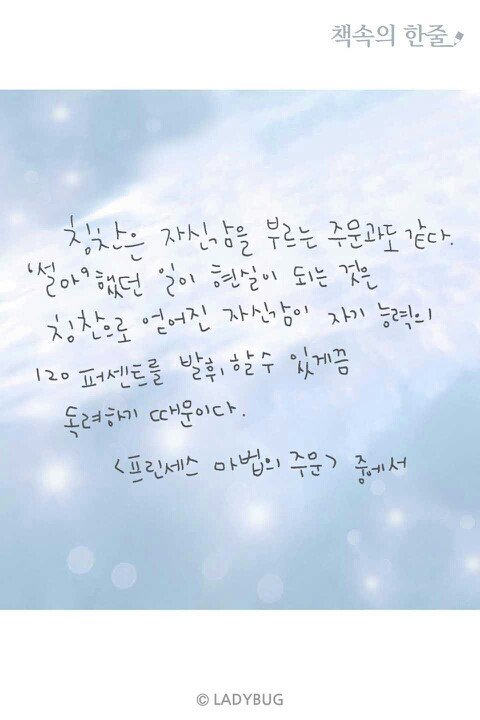 책속의 한줄
칭찬은 자신감을 부르는 주문과도 같다.
'설마' 했던 일이 현실이 되는 것은
칭찬으로 얻어진 자신감이 자기 능력의
120 퍼센트를 발휘, 할 수 있게끔
독려하기 때문이다.
<프린세스 마법의 주문> 중에서
© LADYBUG